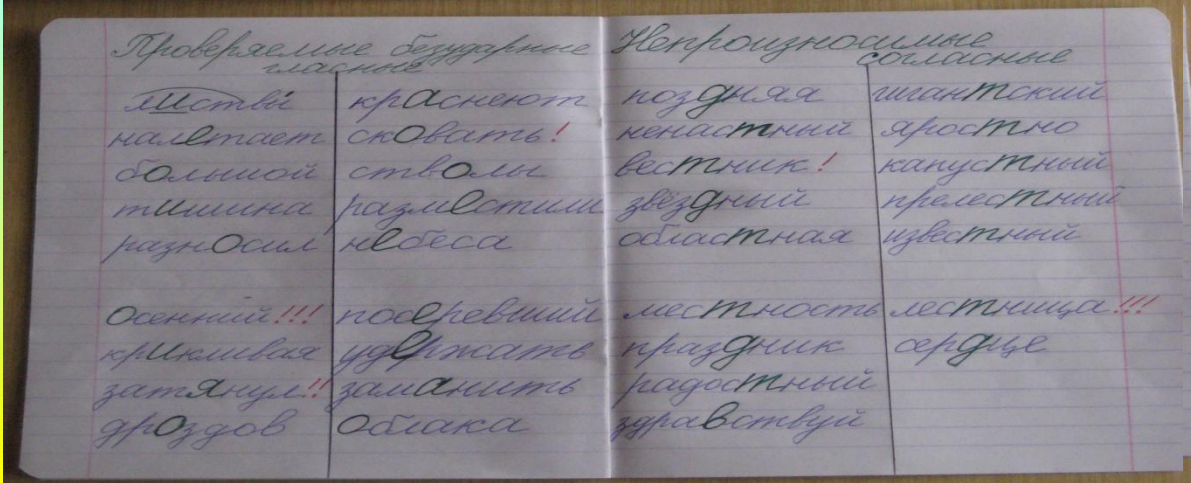 Проверяемые безударные
гласные
листвы́
налетает
большой
тишина
разносил
осенний!!!
крикливая
затянул!!
дроздов
краснеют
сковать!
стволы
разместили
небеса
посеревший
удержать
заманить
облака
Непроизносимые
согласные
поздняя
ненастный
вестник!
звёздный
областная
местность
праздник
радостный
здравствуй
гигантский
яростно
капустный
прелестный
известный
лестница!!!
сердце